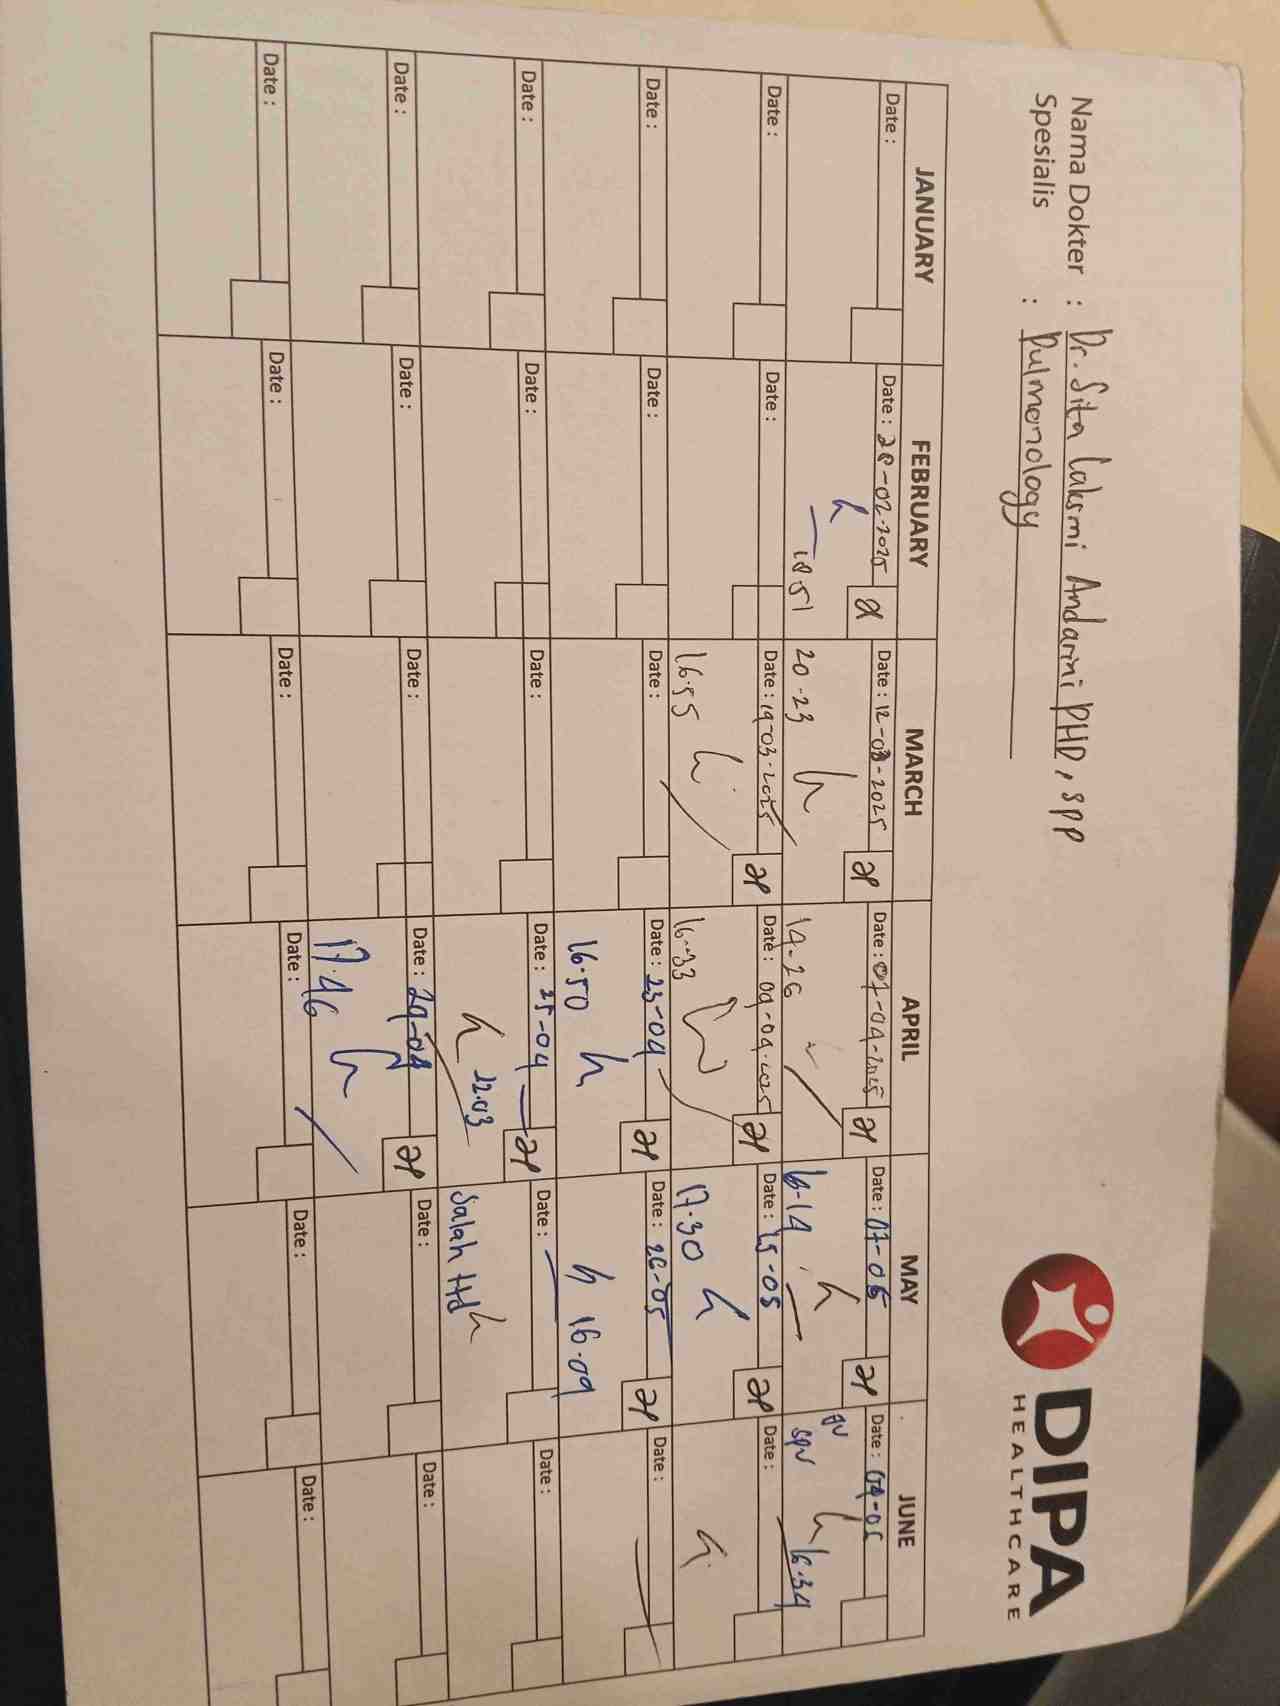 Nama Dokter : Dr. Sita Laksmi Andarini PHD, SPP
Spesialis : Pulmonology
DIPA
HEALTHCARE
JANUARY FEBRUARY MARCH APRIL MAY JUNE
Date : Date : 28-02-2025 Date : 12-03-2025 Date : 07-04-2025 Date : 07-05 Date : 04-05
18.51 20.23 14.26 16.14 spv 16.34
Date : Date : Date : 19-03-2025 Date : 09-04-2025 Date : 15-05 Date :
16.55 16.33 17.30
Date : Date : Date : Date : 23-04 Date : 26-05 Date :
16.50 16.09
Date : Date : Date : Date : 25-04 Date : Date :
12.03 Salah ttd
Date : Date : Date : Date : 29-04 Date : Date :
17.46
Date : Date : Date : Date : Date : Date :